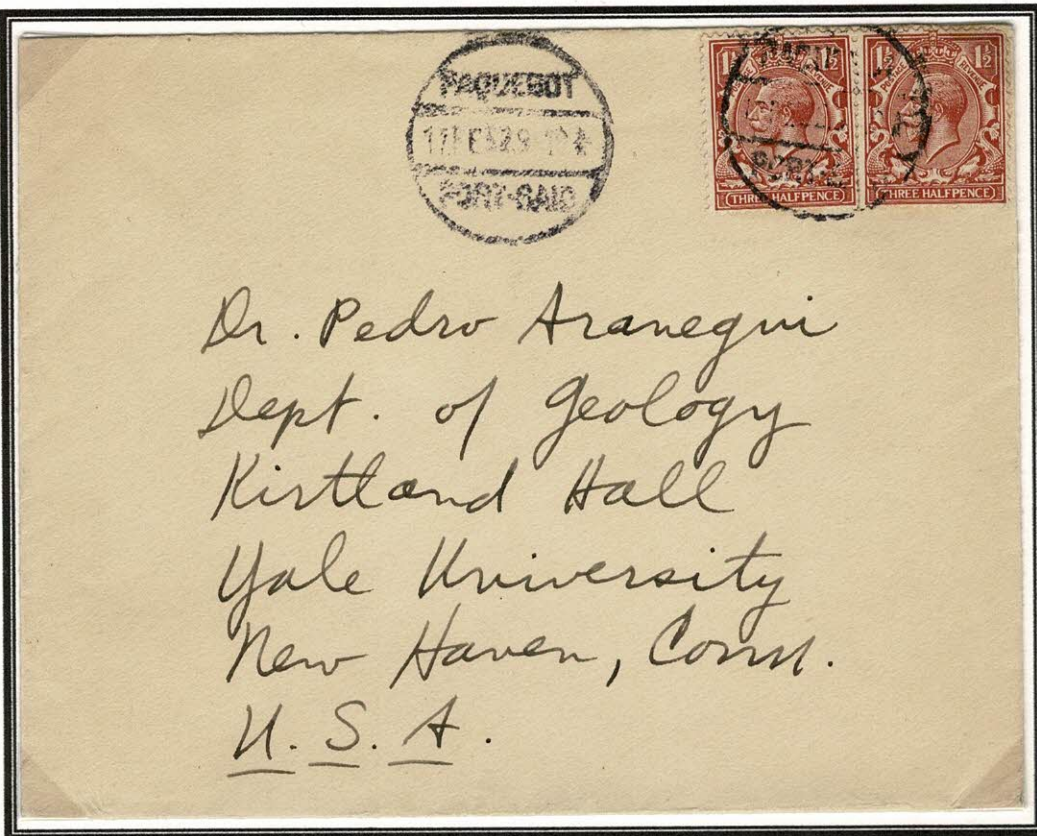 PAQUEBOT
PORT-SAID
1½ 1½
1½
THREE HALFPENCE
THREE HALFPENCE
Dr. Pedro Aranegui
Dept. of Geology
Kirtland Hall
Yale University
New Haven, Conn.
U. S. A.